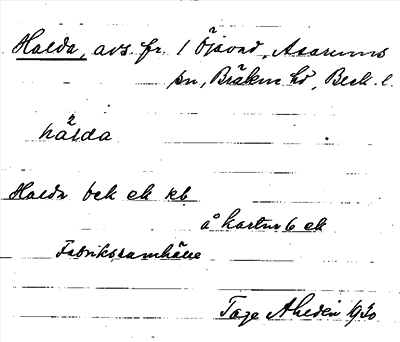 Halda, avs. fr. 1 Öjavad, Asarums
sn, Bräkne hd, Blek. l.
halda
Halda bek ek kb
å kartor 6 ek
Fabrikssamhälle
Tage Ahldén 1930